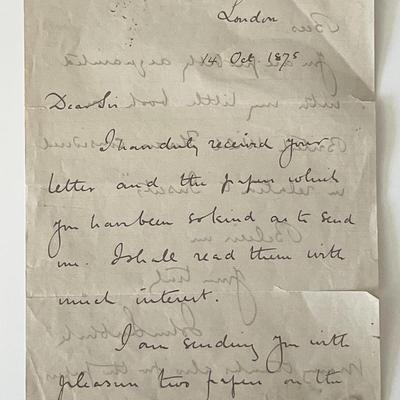 London
14 Oct 1875
Dear Sir
I have duly received your
letter and the papers which
you have been so kind as to send
me. I shall read them with
much interest.
I am sending you with
pleasure two papers on the